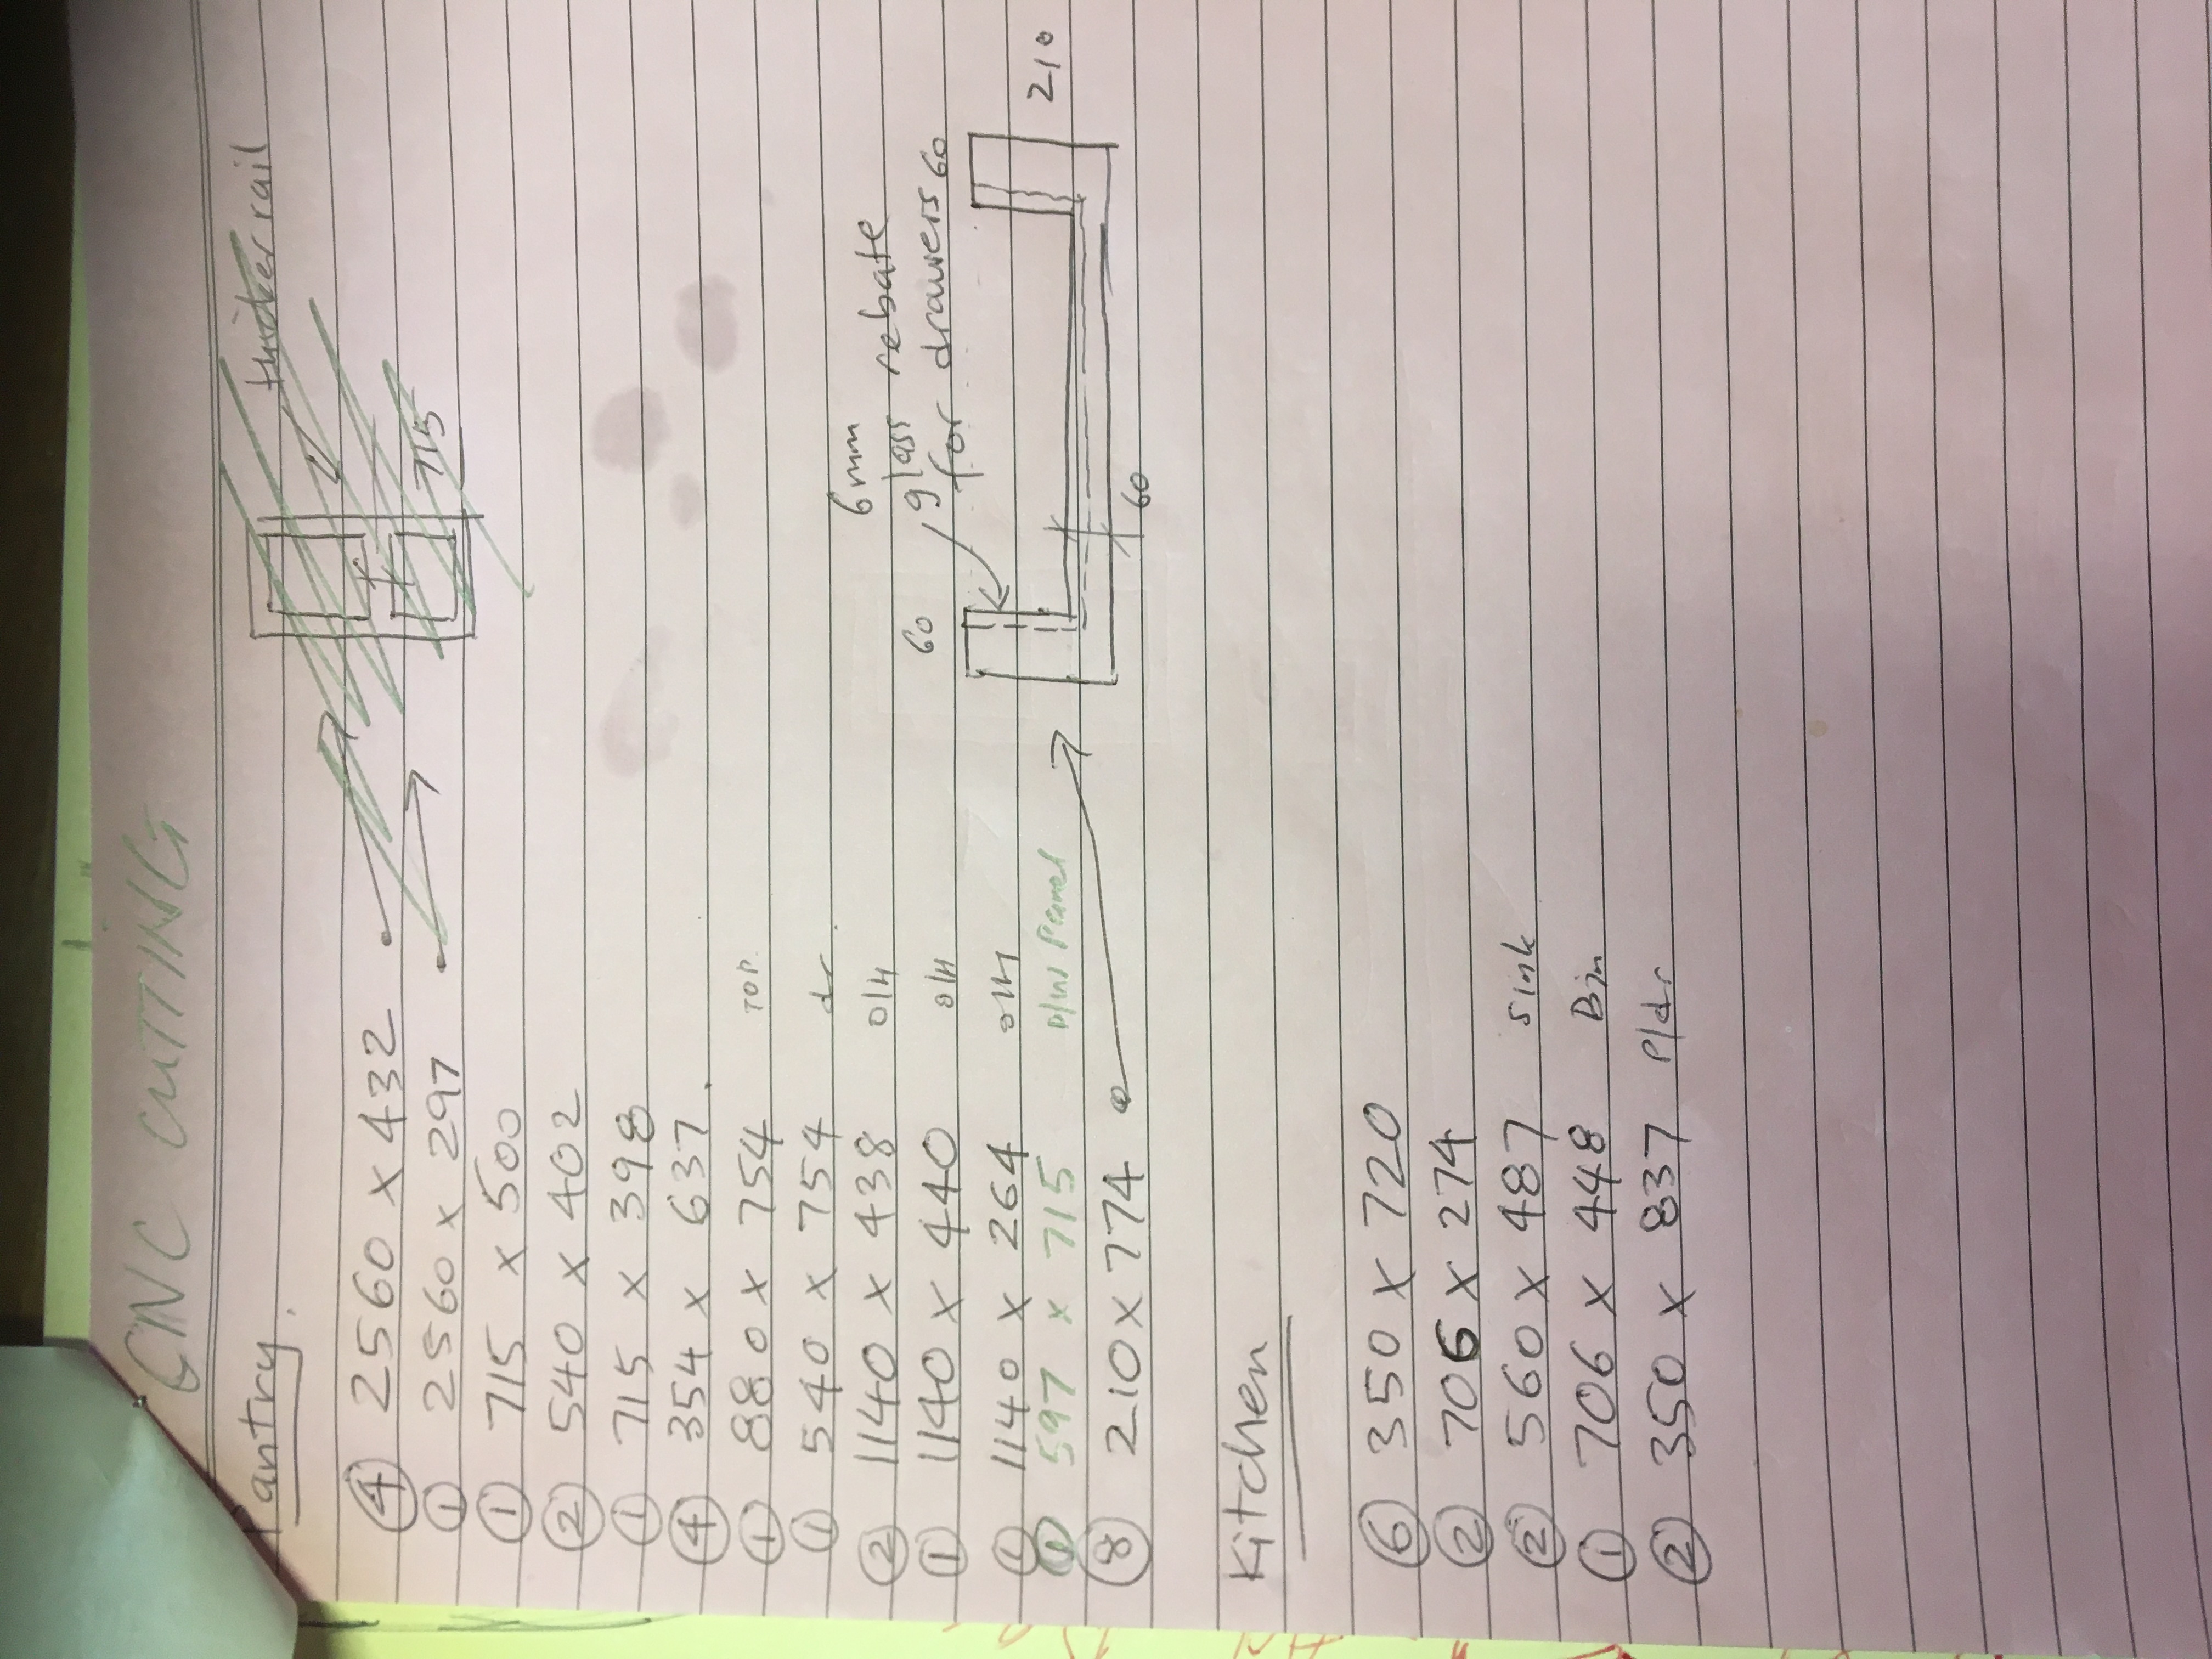 CNC CUTTING
Pantry.
thicker rail
④ 2560 x 432
715
① 2560 x 297
① 715 x 500
② 540 x 402
① 715 x 398
④ 354 x 637
① 880 x 754 TOP.
① 540 x 754 dr
6mm
② 1140 x 438 O/H
glass rebate
① 1140 x 440 O/H
for drawers
60
60
① 1140 x 264 O/H
① 597 x 715
⑧ 210 x 774
210
60
Kitchen
⑥ 350 x 720
② 706 x 274
② 560 x 487 Sink
① 706 x 448 Bin
② 350 x 837 P/dr